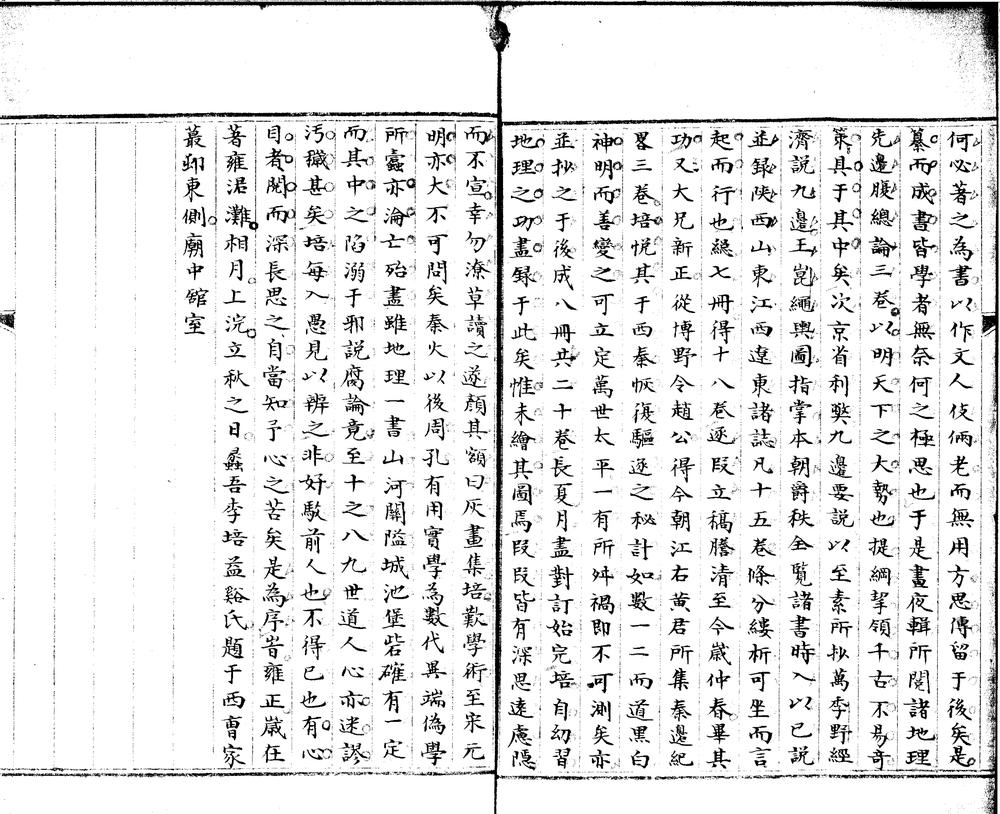 何必著之為書以作文人伎倆老而無用方思傳留于後矣是
纂而成書皆學者無奈何之極思也于是晝夜輯所閱諸地理
先邊腹總論三卷以明天下之大勢也提綱挈領千古不易奇
策具于其中矣次京省利獘九邊要說以至素所抄萬季野經
濟説九邊王崑繩輿圖指掌本朝爵秩全覽諸書時入以己説
並録陝西山東江西遼東諸誌凡十五卷條分縷析可坐而言
起而行也總七冊得十八卷逐段立稿謄清至今歲仲春畢其
功又大兄新正從博野令趙公得今朝江右黄君所集秦邊紀
畧三卷培悦其于西秦恢復驅逐之秘計如數一二而道黑白
神明而善變之可立定萬世太平一有所舛禍即不可測矣亦
並抄之于後成八冊共二十卷長夏月盡對訂始完培自幼習
地理之功盡録于此矣惟未繪其圖焉段段皆有深思遠慮隱
而不宣幸勿潦草讀之遂顏其額曰灰畫集培歎學術至宋元
明亦大不可問矣秦火以後周孔有用實學為數代異端偽學
所蠹亦淪亡殆盡雖地理一書山河關隘城池堡砦確有一定
而其中之陷溺于邪説腐論竟至十之八九世道人心亦迷謬
汚穢甚矣培每入愚見以辨之非好駁前人也不得已也有心
目者閱而深長思之自當知予心之苦矣是為序旹雍正歲在
著雍涒灘相月上浣立秋之日蠡吾李培益谿氏題于西曺家
蕞邸東側廟中舘室